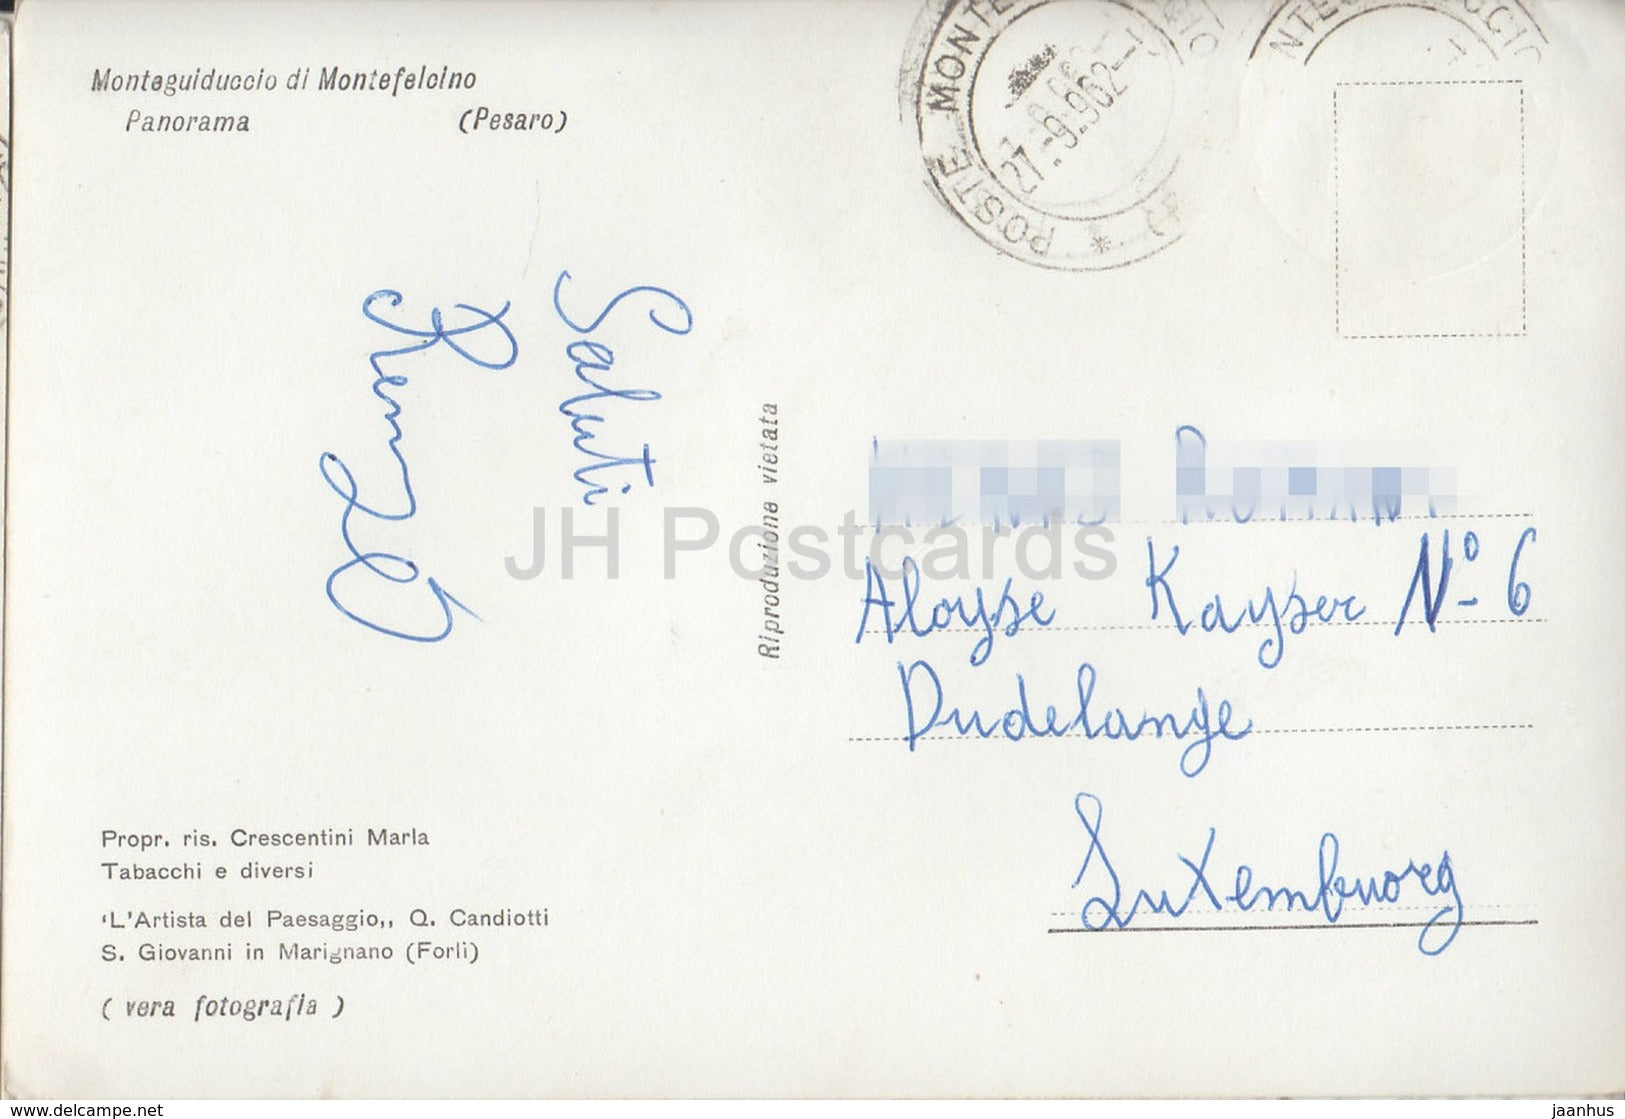 Monteguiduccio di Montefelcino
Panorama (Pesaro)
POSTE MONTE
27-9-962
Saluti
Renzo
Riproduzione vietata
Aloyse Kayser No 6
Dudelange
Luxembuorg
Propr. ris. Crescentini Maria
Tabacchi e diversi
‘L'Artista del Paesaggio,, Q. Candiotti
S. Giovanni in Marignano (Forlì)
( vera fotografia )
JH Postcards
www.delcampe.net
jaanhus